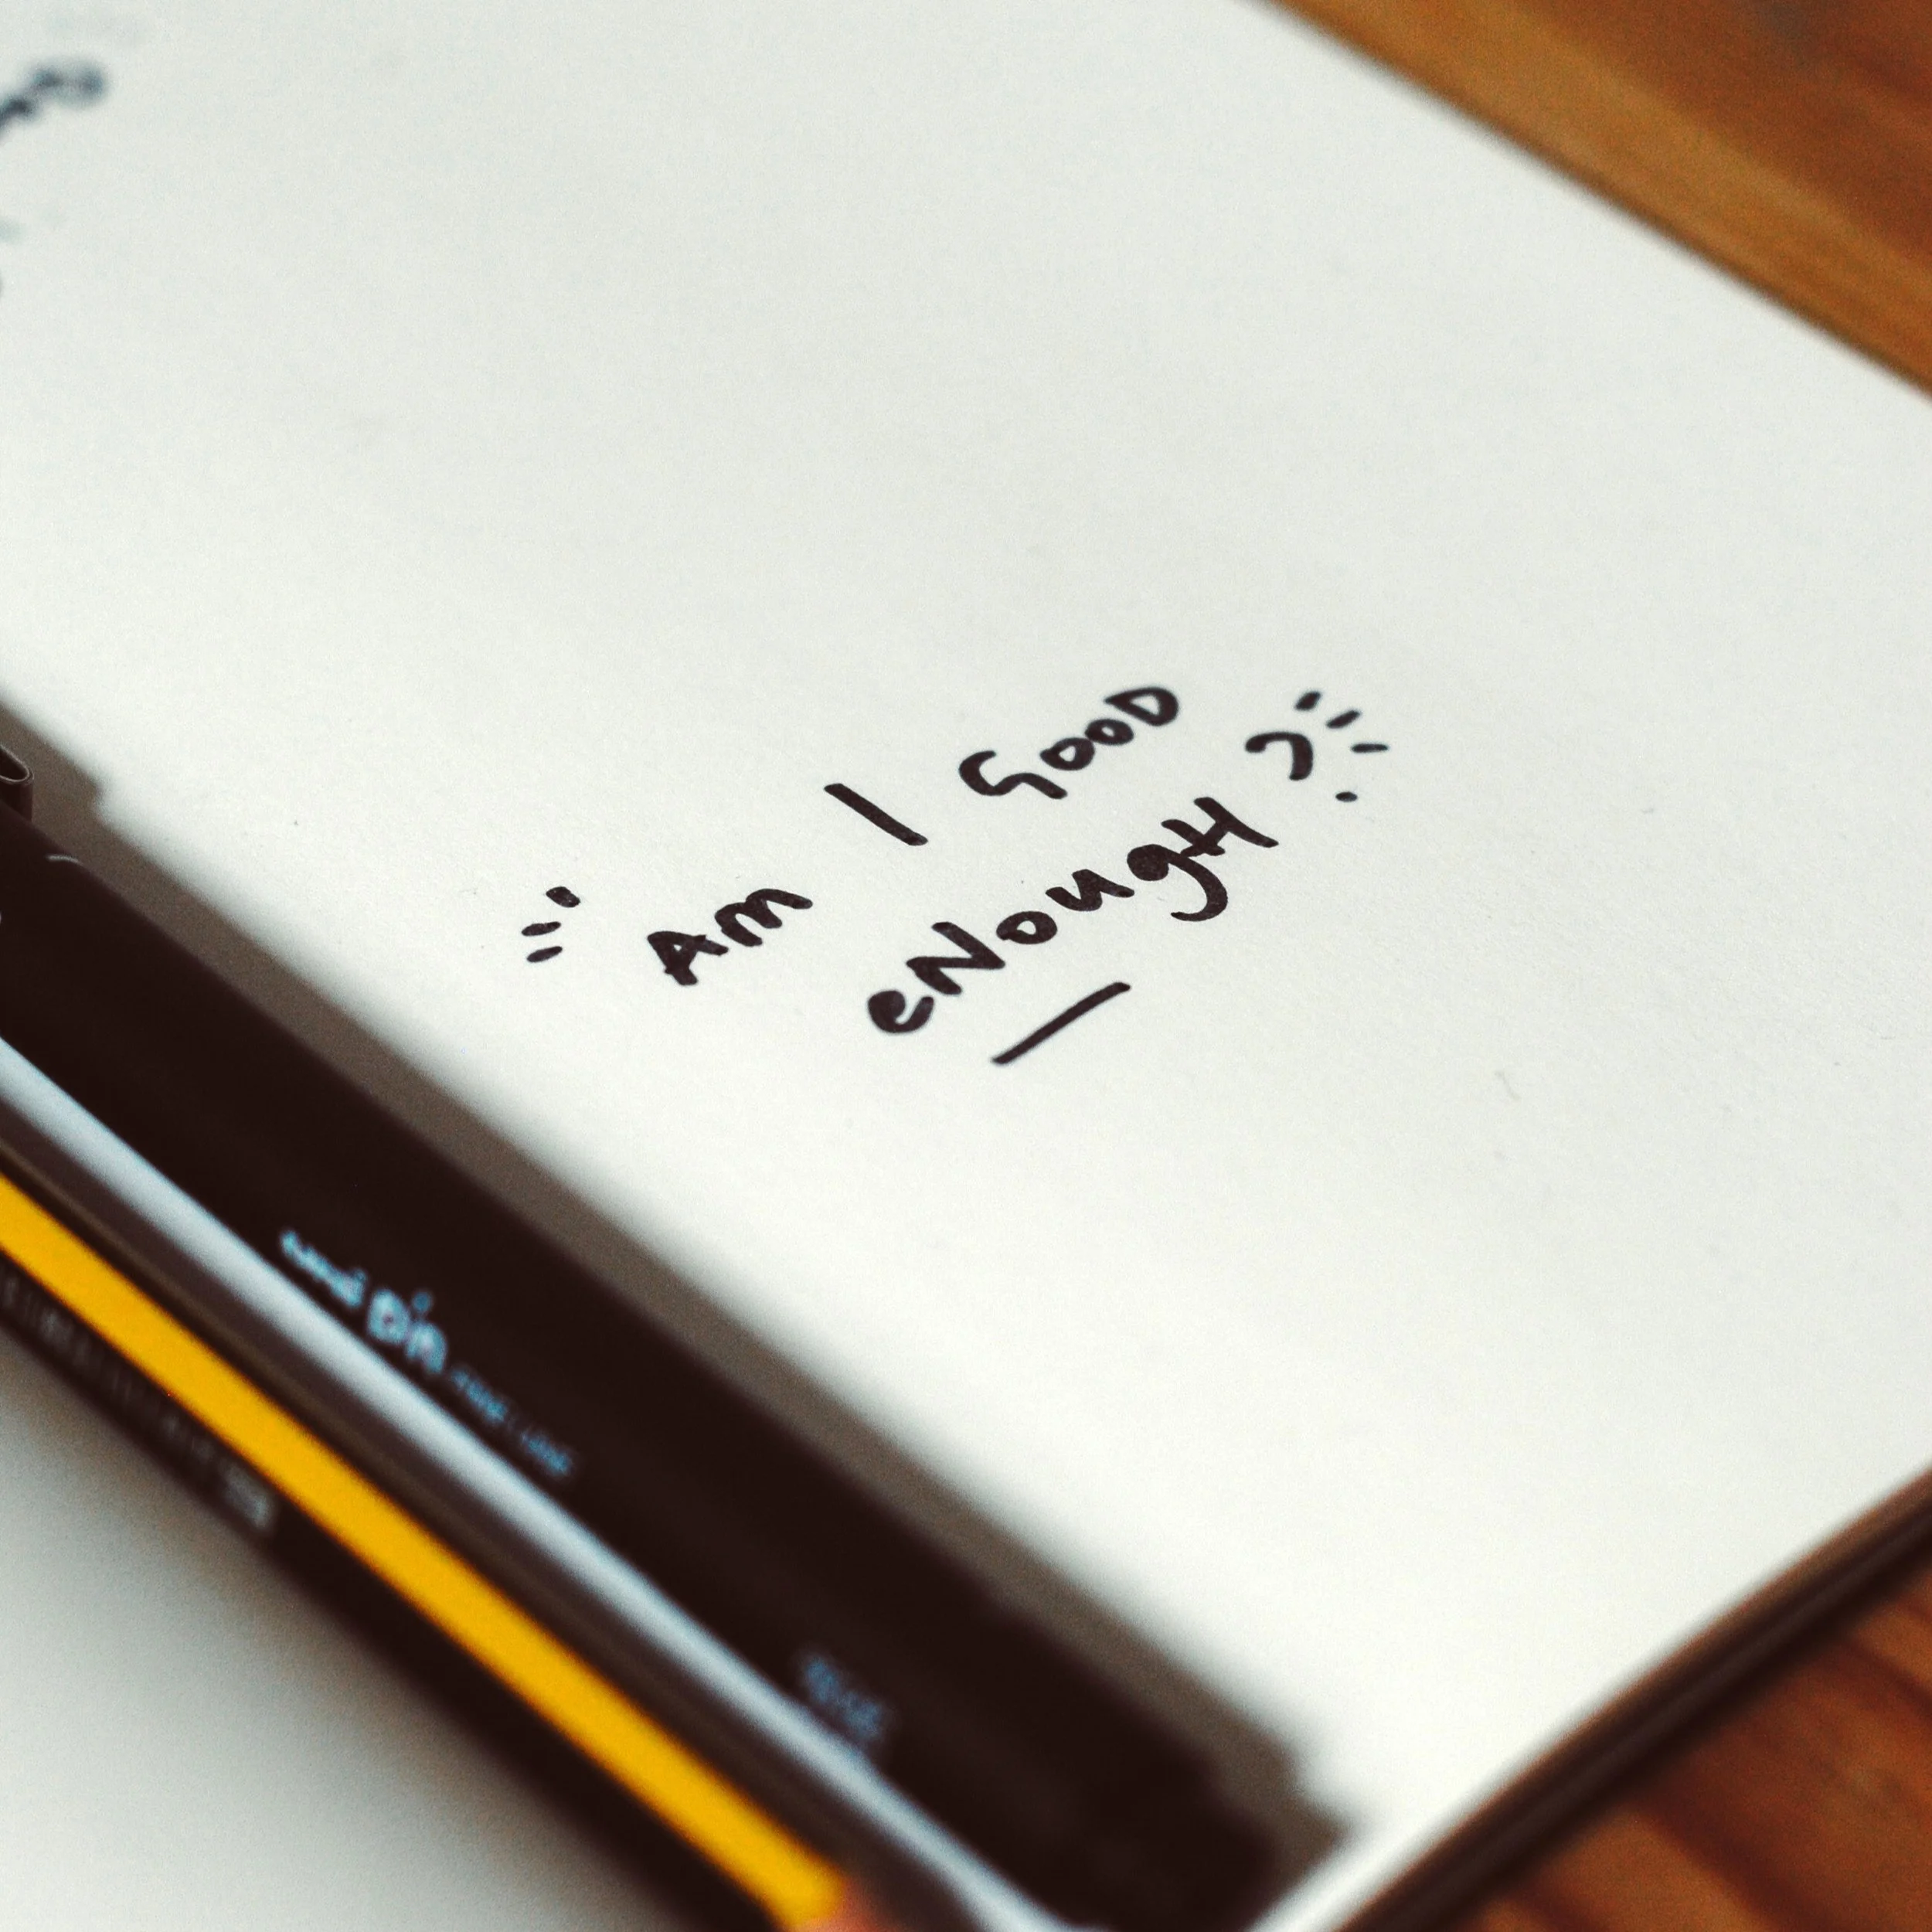 Am I GooD
eNougH?
uni Pin